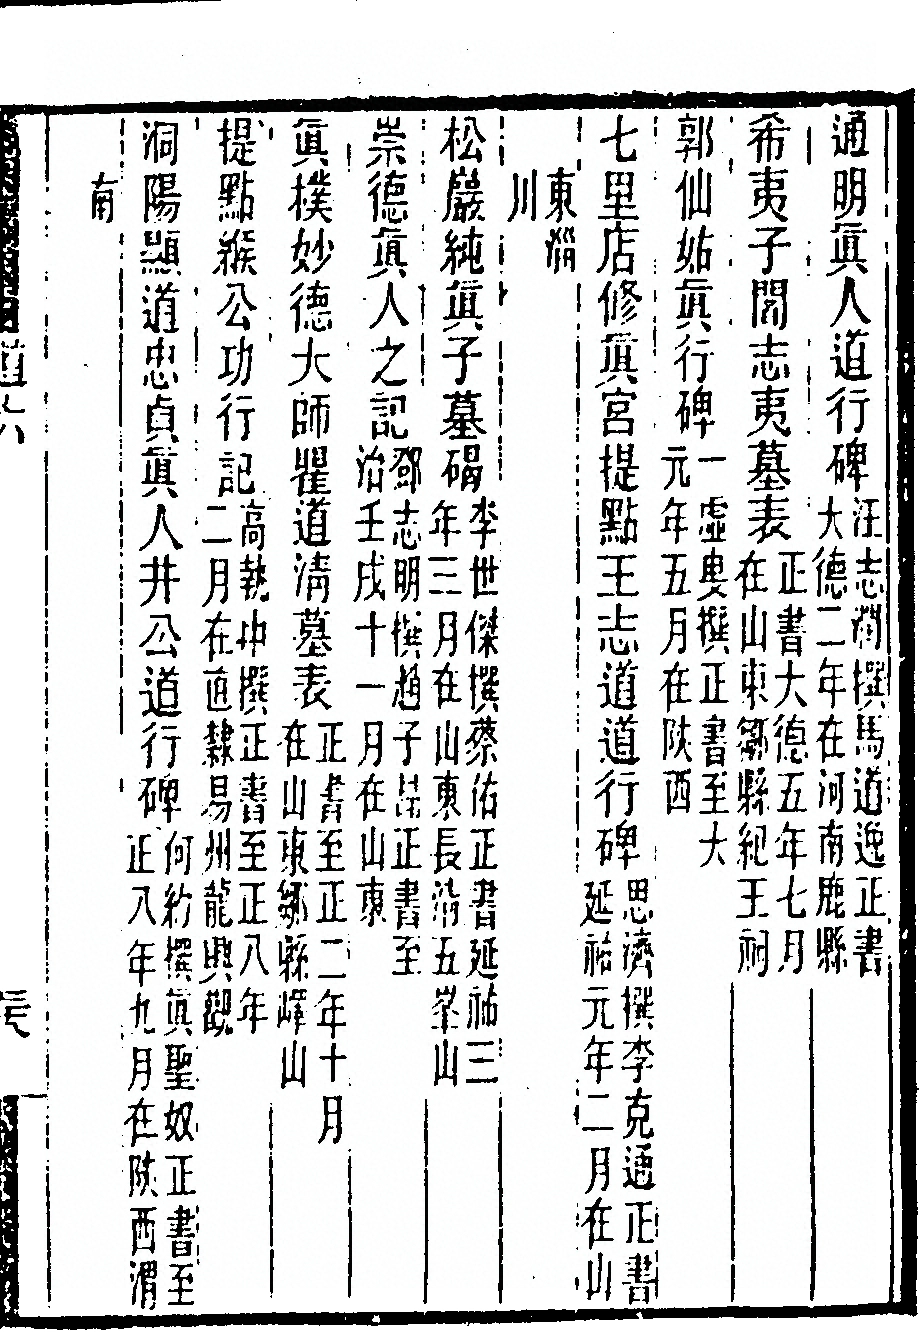 通明眞人道行碑 汪志濶撰馬道逸正書大德二年在河南鹿縣
希夷子閻志夷墓表 正書大德五年七月在山東鄒縣紀王祠
郭仙姑眞行碑 一虛叟撰正書至大元年五月在陝西
七里店修眞宮提點王志道道行碑 思濟撰李克通正書延祐元年二月在山
東淄川
松巖純眞子墓碣 李世傑撰蔡佑正書延祐三年三月在山東長淸五峯山
崇德眞人之記 鄧志明撰趙子昂正書至治壬戌十一月在山東
眞樸妙德大師瞿道淸墓表 正書至正二年十月在山東鄒縣嶧山
提點緱公功行記 高執中撰正書至正八年二月在直隸易州龍興觀
洞陽顯道忠貞眞人井公道行碑 何約撰眞聖奴正書至正八年九月在陝西渭
南
道六